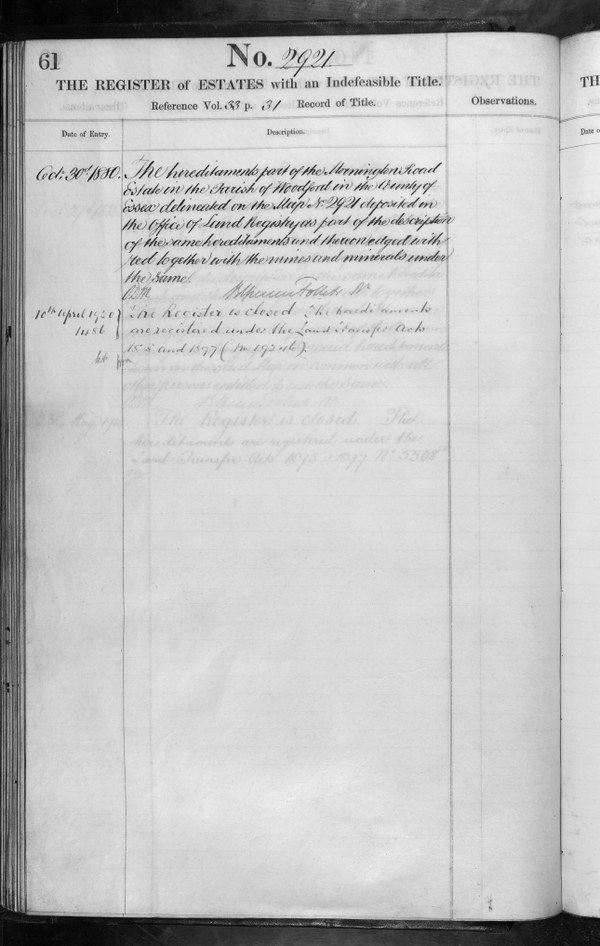 61
No. 2921
THE REGISTER of ESTATES with an Indefeasible Title.
Reference Vol. 33 p. 31 Record of Title.
Observations.
Date of Entry.
Description.
Oct. 30th 1880. The hereditaments part of the Mornington Road
Estate in the Parish of Woodford in the County of
Essex delineated on the Map No 2921 deposited in
the Office of Land Registry as part of the description
of the same hereditaments and thereon edged with
red together with the mines and minerals under
the same.
Follett
10th April 1920 The Register is closed The hereditaments
1486 are registered under the Land Transfer Acts
and 1897
The Register is closed. The
hereditaments are registered under the
Land Transfer Acts 1875 & 1897 No
TH
Date o